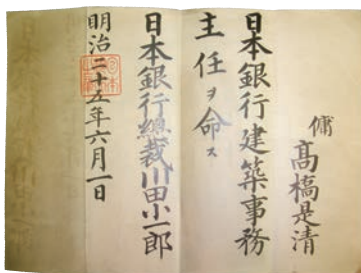 傭
髙橋是清
日本銀行建築事務
主任ヲ命ス
日本銀行總裁川田小一郎
明治二十五年六月一日